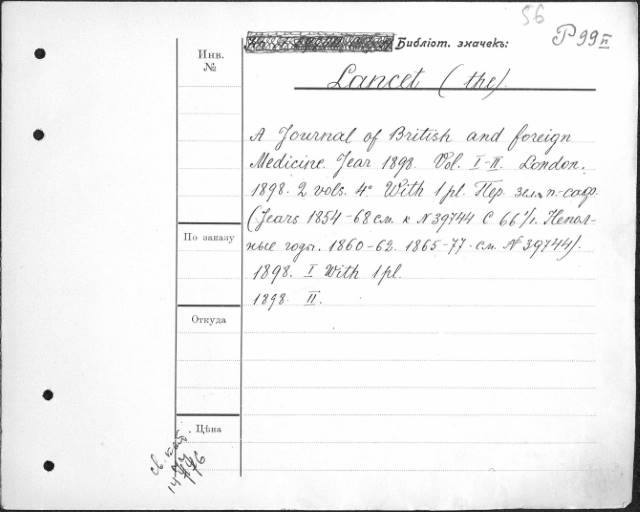 56
P 99 II
Библіот. значекъ:
Инв. №
Lancet (the).
A Journal of British and foreign
Medicine. Year 1898. Vol. I-II. London.
1898. 2 vols. 4° With 1 pl. Пер. зел. п.-саф.
(Years 1854-68 см. к N 39744 С 66 1/2. Непол-
ные годы. 1860-62. 1865-77. см. № 39744).
По заказу
1898. I With 1 pl.
1898. II.
Откуда
Цѣна
св. каб.